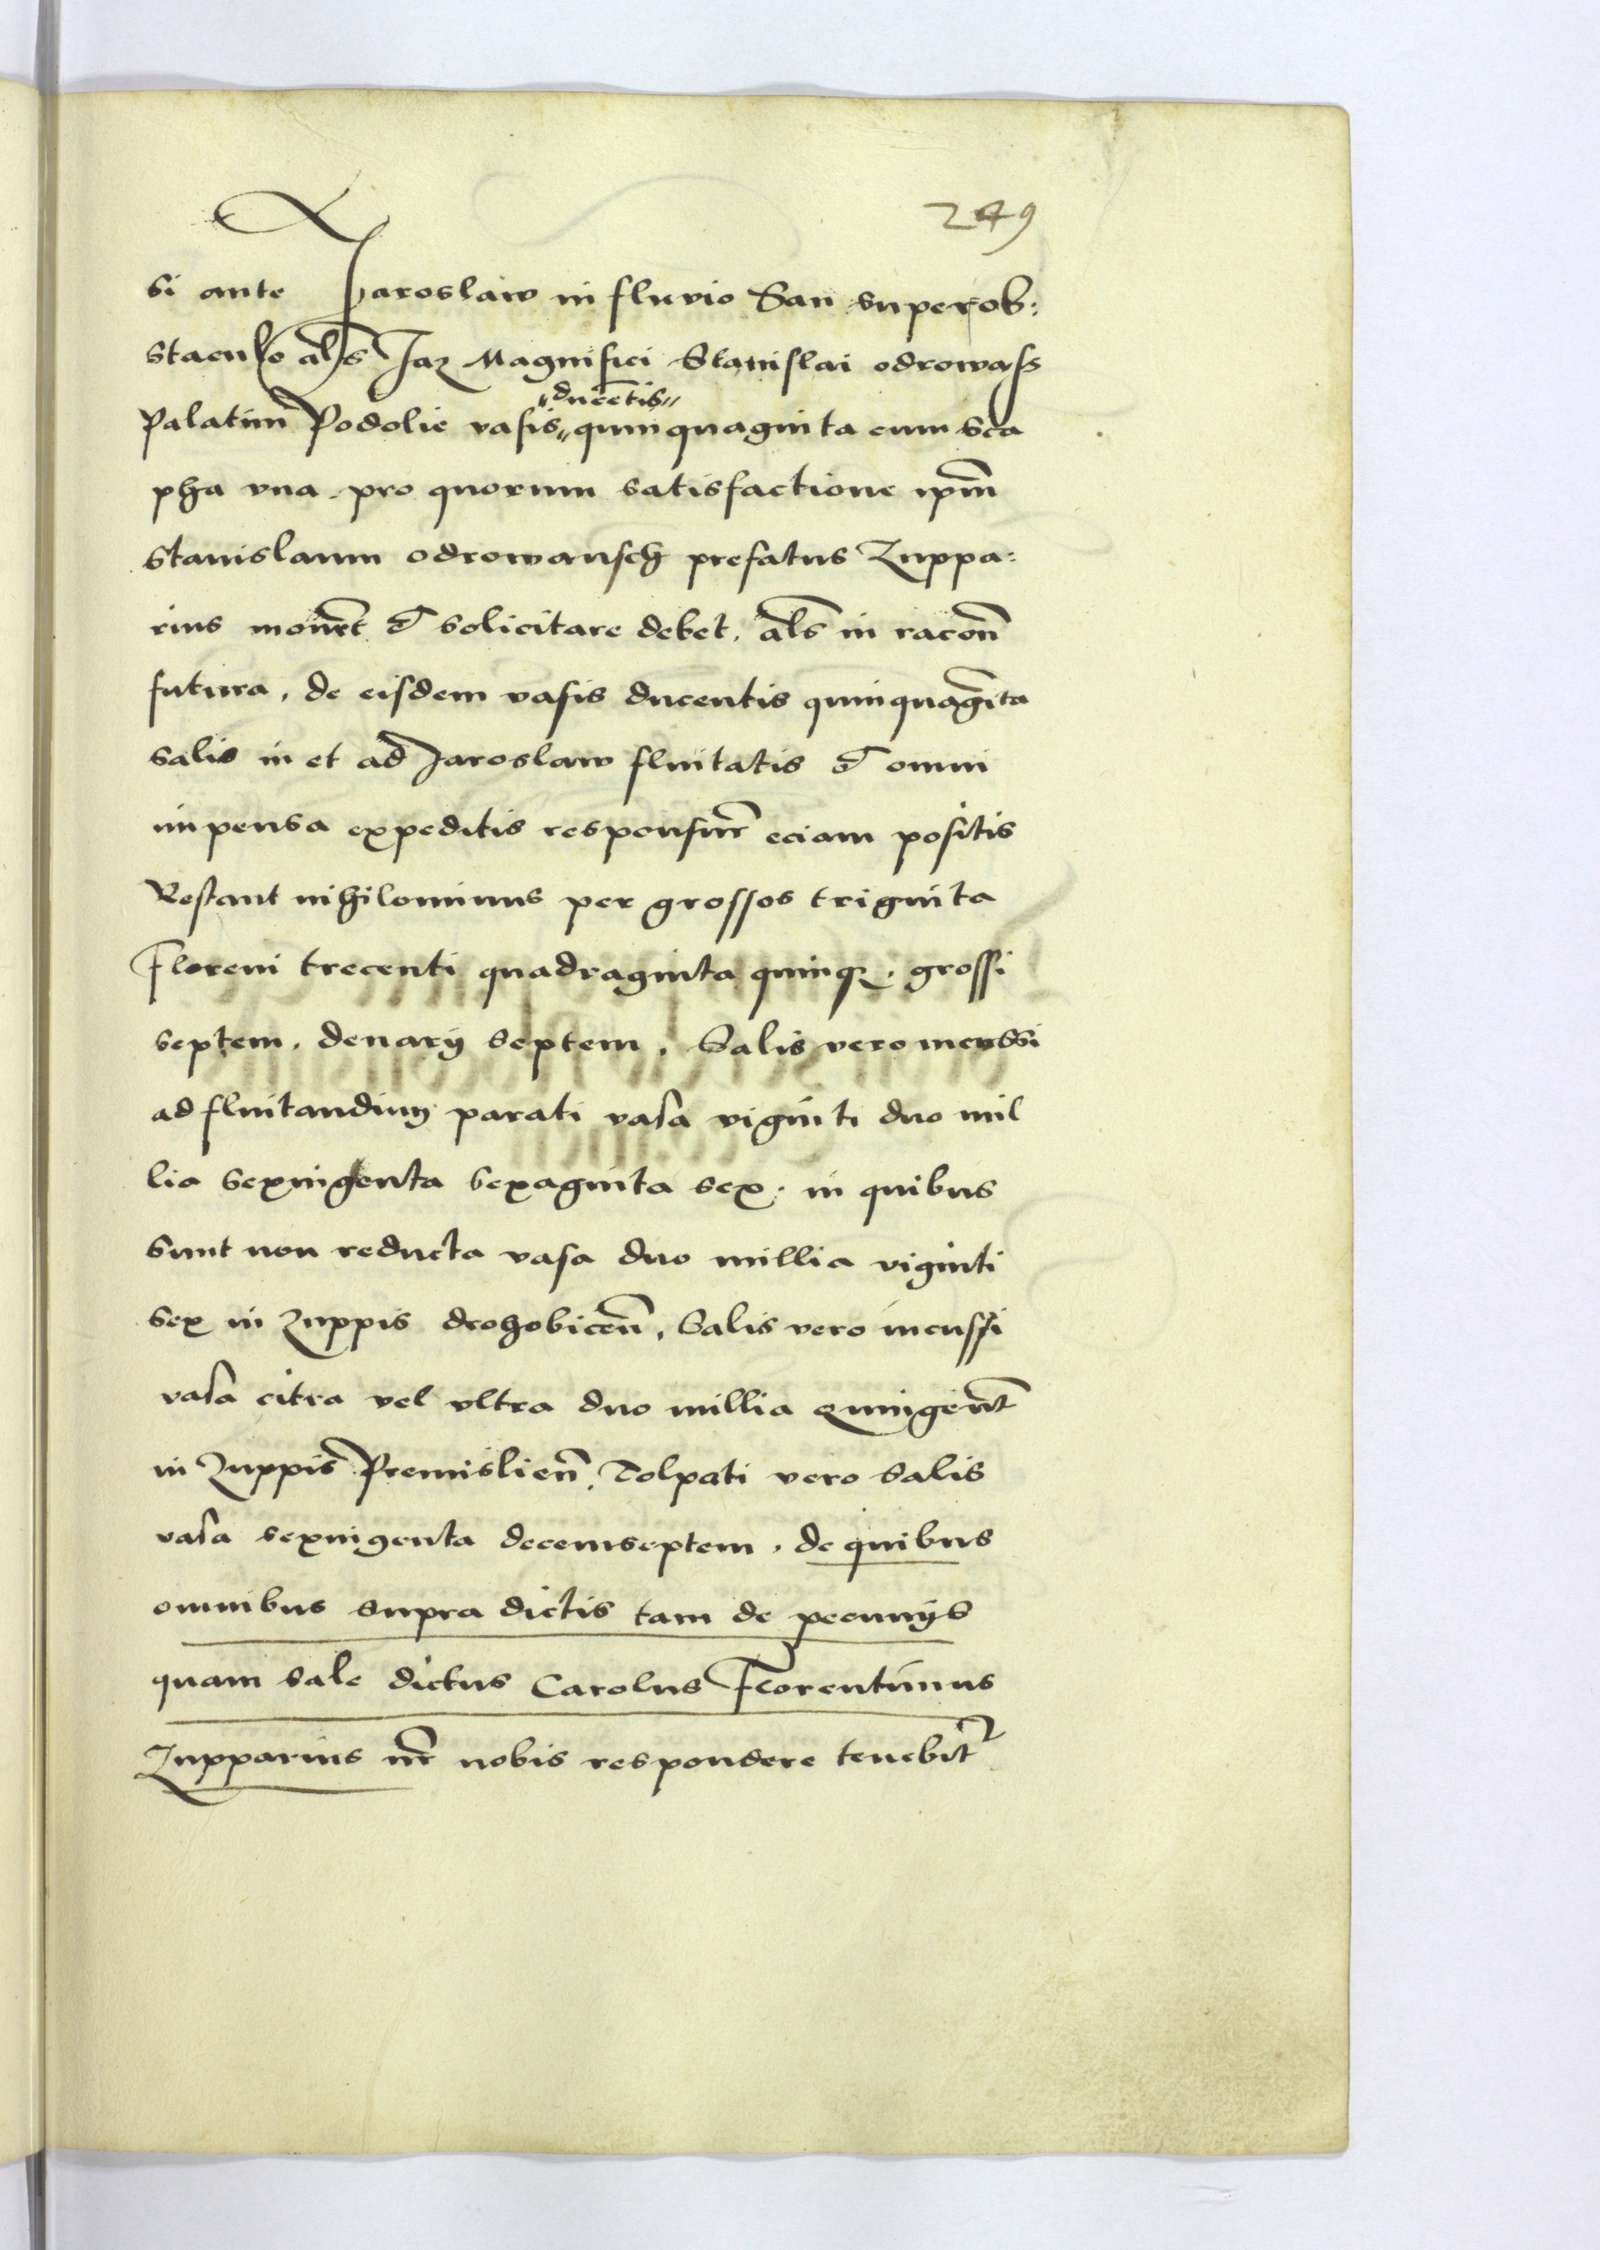 249
si ante Jaroslaw in fluvio San super ob:
staculo als Jaz Magnifici Stanislai odrowass
Palatini Podolie vasis „ducetis„ quinquaginta cum sca
pha vna. pro quorum satisfactione ipm
Stanislaum odrowansch prefatus Zuppa:
rius monet et solicitare debet. als in racon
futura, de eisdem vasis ducentis quinquagita
salis in et ad Jaroslaw fluitatis et omni
impensa expeditis responsur eciam positis
Restant nihilominus per grossos triginta
Floreni trecenti quadraginta quinq3. grossi
septem. denarij septem. Salis vero incussi
ad fluitandum parati vasa viginti duo mil
lia sexingenta sexaginta sex. in quibus
sunt non reducta vasa duo millia viginti
sex in zuppis drohobicen. Salis vero incussi
vasa citra vel vltra duo millia quingent
in Zuppis Premislien. Tolpati vero salis
vasa sexingenta decemseptem. de quibus
omnibus supra dictis tam de pecunijs
quam sale dictus Carolus Florentinus
Zupparius nr nobis respondere tenebit